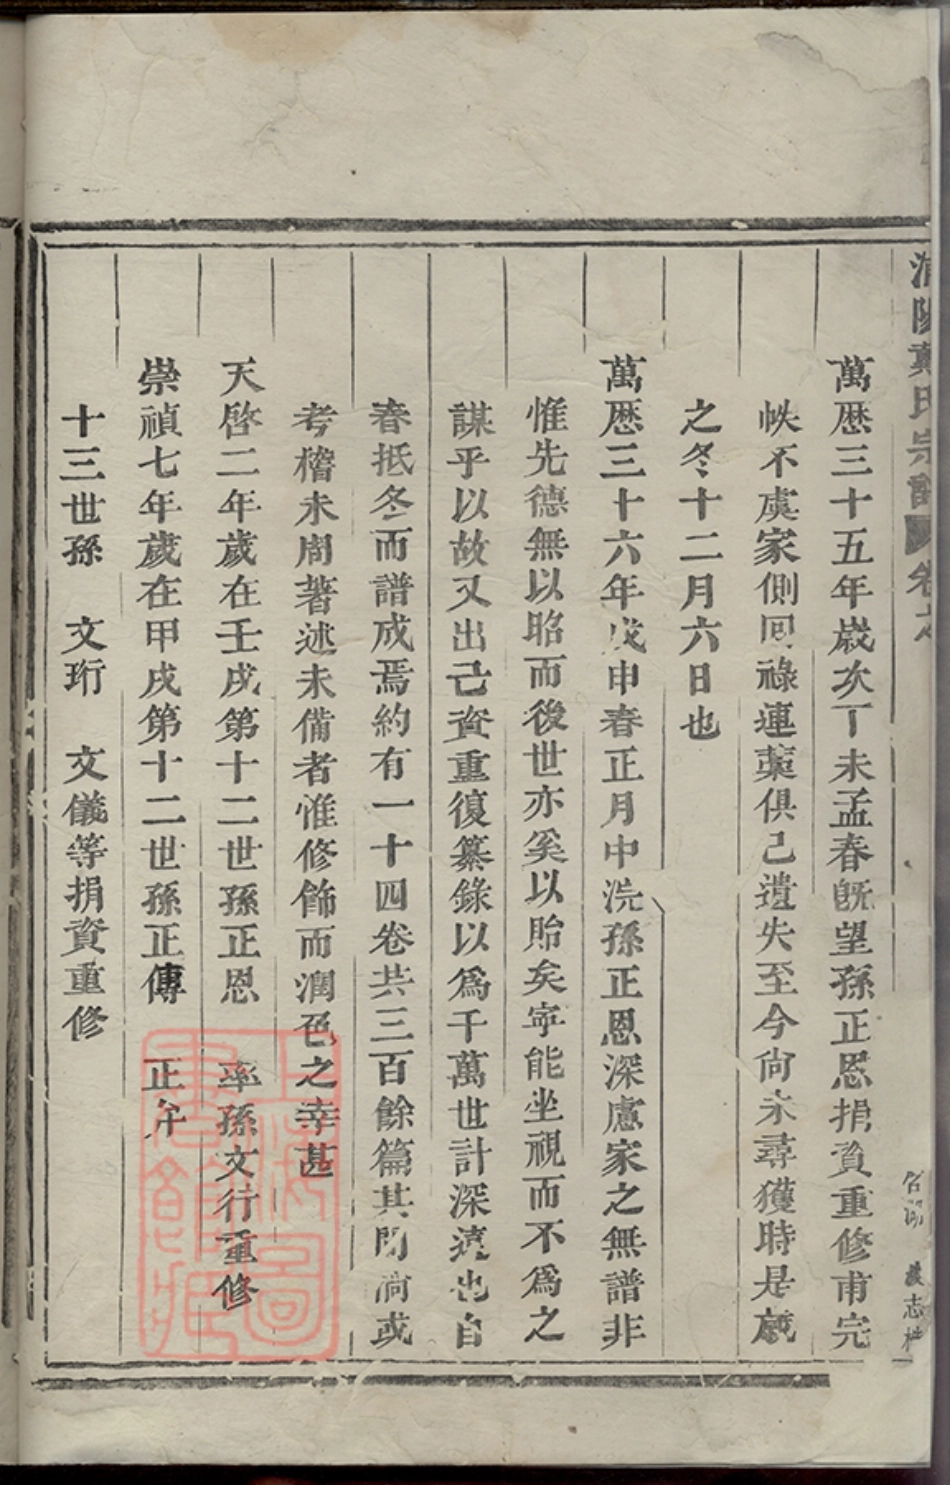 浦陽戴氏宗譜 卷之
萬厯三十五年歲次丁未孟春旣望孫正恩捐資重修甫完
帙不虞家側回祿連藁俱己遺失至今尙未尋獲時是歲
之冬十二月六日也
萬厯三十六年戊申春正月中浣孫正恩深慮家之無譜非
惟先德無以昭而後世亦奚以貽矣寕能坐視而不爲之
謀乎以故又出己資重復纂錄以爲千萬世計深遠也自
春抵冬而譜成焉約有一十四卷共三百餘篇其間
或
考稽未周著述未備者惟修飾而潤色之幸甚
天啓二年歲在壬戌第十二世孫正恩 率孫文行重修
崇禎七年歲在甲戌第十二世孫正傳 正
十三世孫 文珩 文儀等捐資重修
志
上海圖書館藏